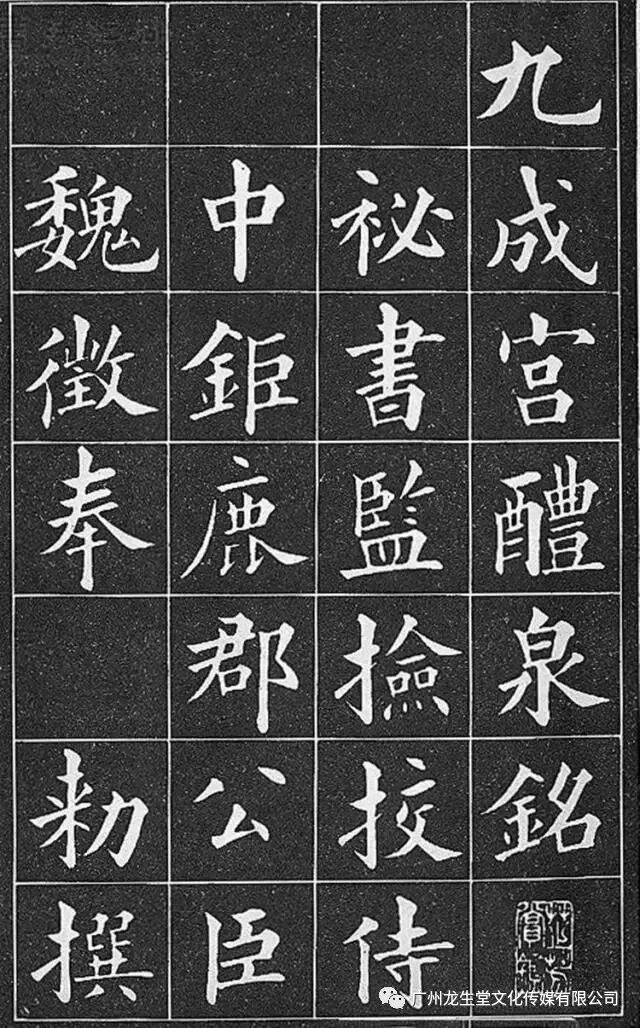 九成宫醴泉銘
祕書監撿挍侍
中鉅鹿郡公臣
魏徵奉 勑撰
广州龙生堂文化传媒有限公司